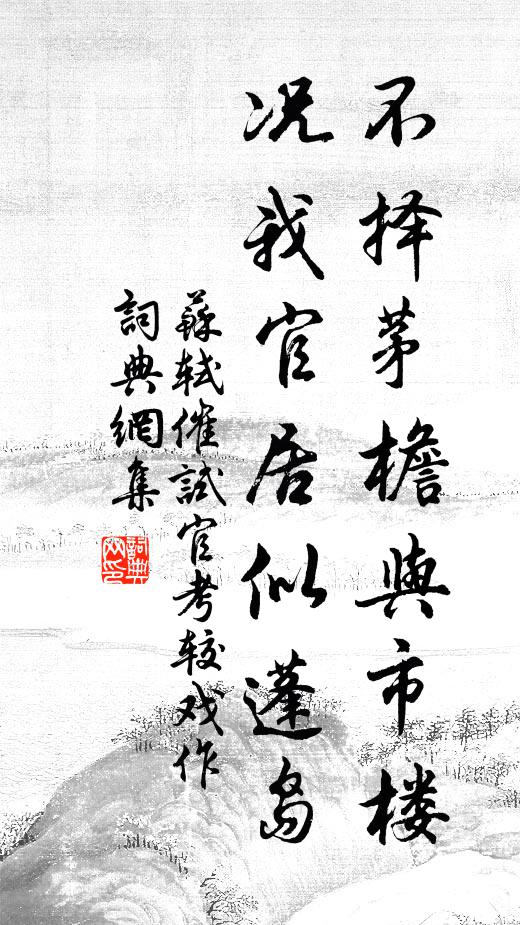 不择茅檐與市楼
况我官居似蓬岛
蘇轼催試官考较戏作
詞典網集
詞典网印